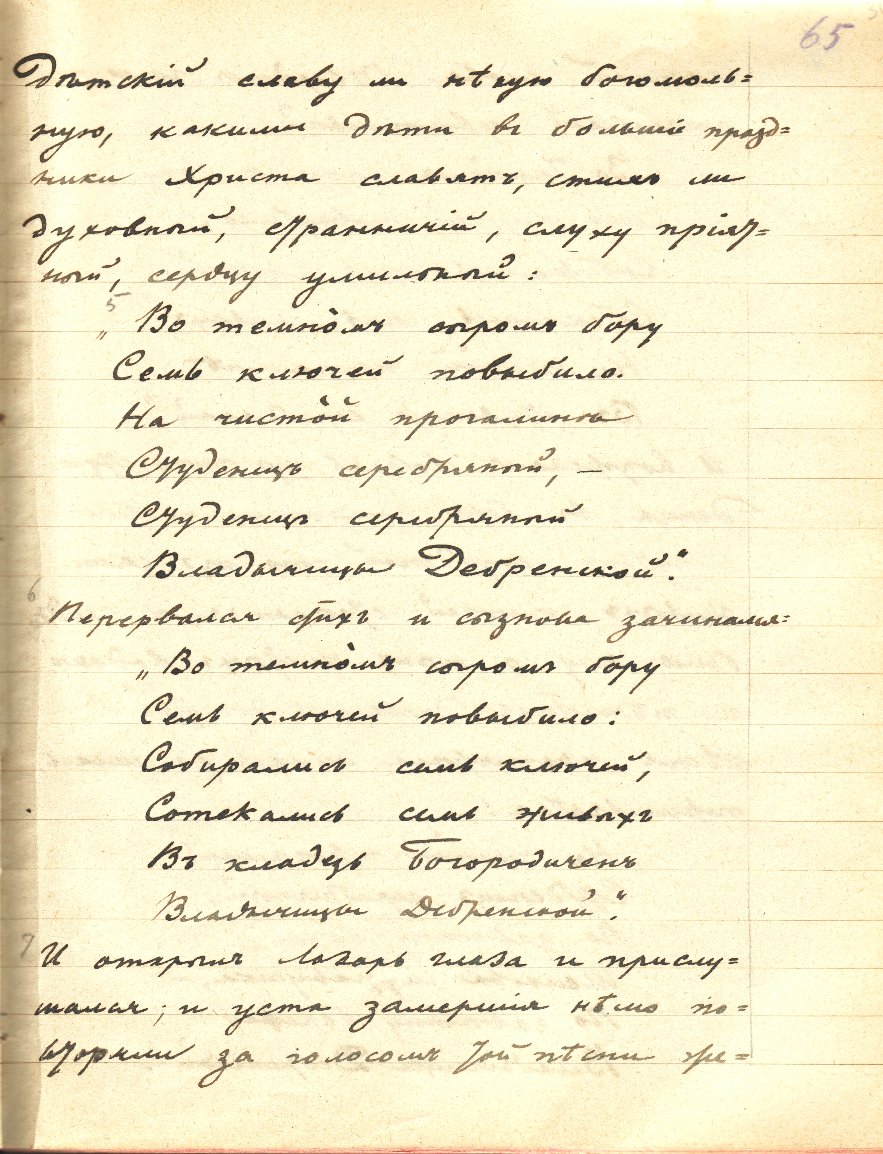 65
дѣтскій славу ли нѣкую богомоль=
ную, какими дѣти въ большіе празд=
ники Христа славятъ, стихъ ли
духовный, странничій, слуху пріят=
ный, сердцу умильный:
5
„Во темно̀мъ сыромъ бору
Семь ключей повыбило.
На чисто̀й прогалинѣ
Студенецъ серебряный, —
Студенецъ серебряный
Владычицы Дебренской“.
6
Перервался стихъ и сызнова зачинался:
„Во темно̀мъ сыромъ бору
Семь ключей повыбило:
Собирались семь ключей,
Сотекались семь живыхъ
Въ кладезь Богородиченъ
Владычицы Дебренской“.
7
И открылъ Лазарь глаза и прислу=
шался; и уста замершія нѣмо по=
вторяли за голосомъ той пѣсни же=